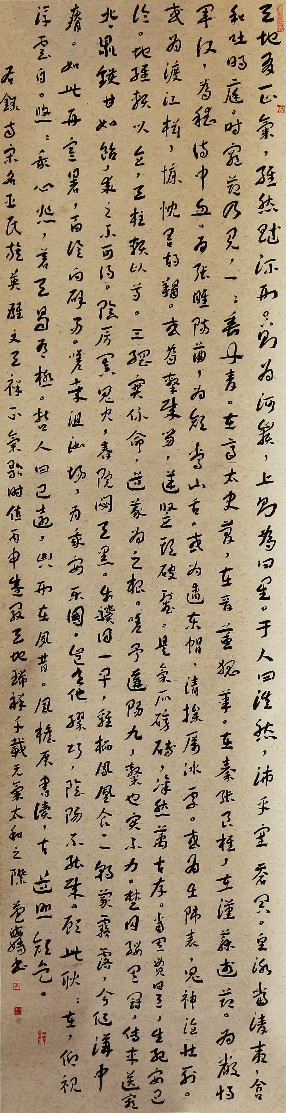 天地有正氣，雜然賦流形。下則為河嶽，上則為日星。于人曰浩然，沛乎塞蒼冥。皇路當清夷，含
和吐明庭。時窮節乃見，一一垂丹青。在齊太史簡，在晉董狐筆。在秦張良椎，在漢蘇武節。為嚴將
軍頭，為嵇侍中血。為張睢陽齒，為顏常山舌。或為遼東帽，清操厲冰雪。或為出師表，鬼神泣壯烈。
或為渡江楫，慷慨吞胡羯。或為擊賊笏，逆豎頭破裂。是氣所磅礴，凜然萬古存。當其貫日月，生死安足
論。地維賴以立，天柱賴以尊。三綱實係命，道義為之根。嗟予遘陽九，隸也實不力。楚囚纓其冠，傳車送窮
北。鼎鑊甘如飴，求之不可得。陰房闃鬼火，春院閟天黑。牛驥同一皂，雞棲鳳凰食。一朝蒙霧露，分作溝中
瘠。如此再寒暑，百沴自辟易。嗟哉沮洳場，為我安樂國。豈有他繆巧，陰陽不能賊。顧此耿耿在，仰視
浮雲白。悠悠我心悲，蒼天曷有極。哲人日已遠，典刑在夙昔。風檐展書讀，古道照顏色。
右錄南宋名臣民族英雄文天祥正氣歌時值丙申天地禎祥千載元氣太和之際書